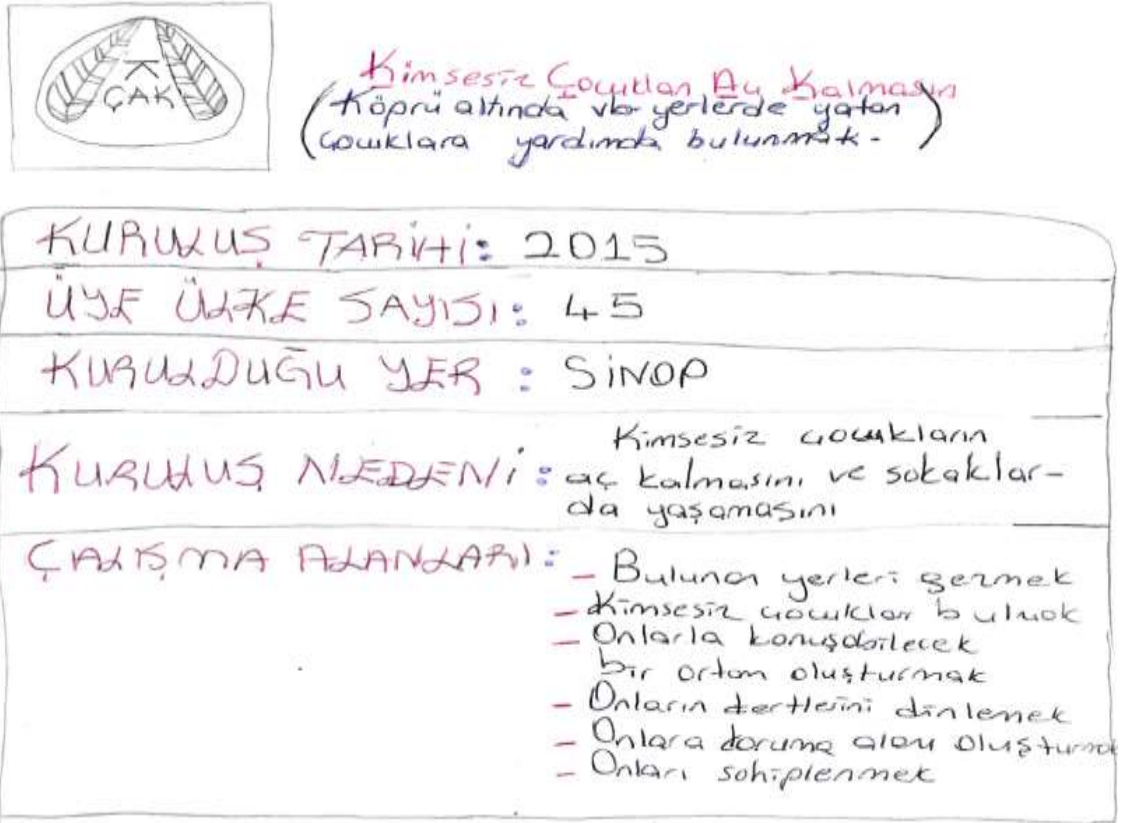 K
ÇAK
Kimsesiz Çocukları Aç Kalmasın
(Köprü altında vb yerlerde yatan
çocuklara yardımda bulunmak-)
KURULUŞ TARİHİ: 2015
ÜYE ÜLKE SAYISI: 45
KURULDUĞU YER : SİNOP
KURULUŞ NEDENİ: Kimsesiz çocukların
aç kalmasını ve sokaklar-
da yaşamasını
ÇALIŞMA ALANLARI:
- Bulunan yerleri gezmek
- Kimsesiz çocuklar bulmak
- Onlarla konuşabilecek
bir ortam oluşturmak
- Onların dertlerini dinlemek
- Onlara koruma alanı oluşturmak
- Onları sahiplenmek